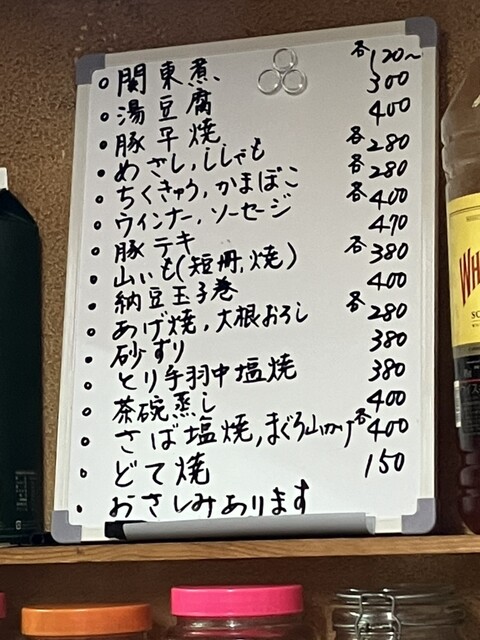 ○ 関東煮 各120〜
○ 湯豆腐 300
・豚平焼 400
・めざし,ししゃも 各280
・ちくきゅう,かまぼこ 各280
・ウインナー,ソーセージ 各400
・豚テキ 470
・山いも(短冊,焼) 各380
・納豆玉子巻 400
・あげ焼,大根おろし 各280
・砂ずり 380
・とり手羽中塩焼 380
・茶碗蒸し 400
・さば塩焼,まぐろ山かけ 各400
・どて焼 150
・おさしみあります
WH